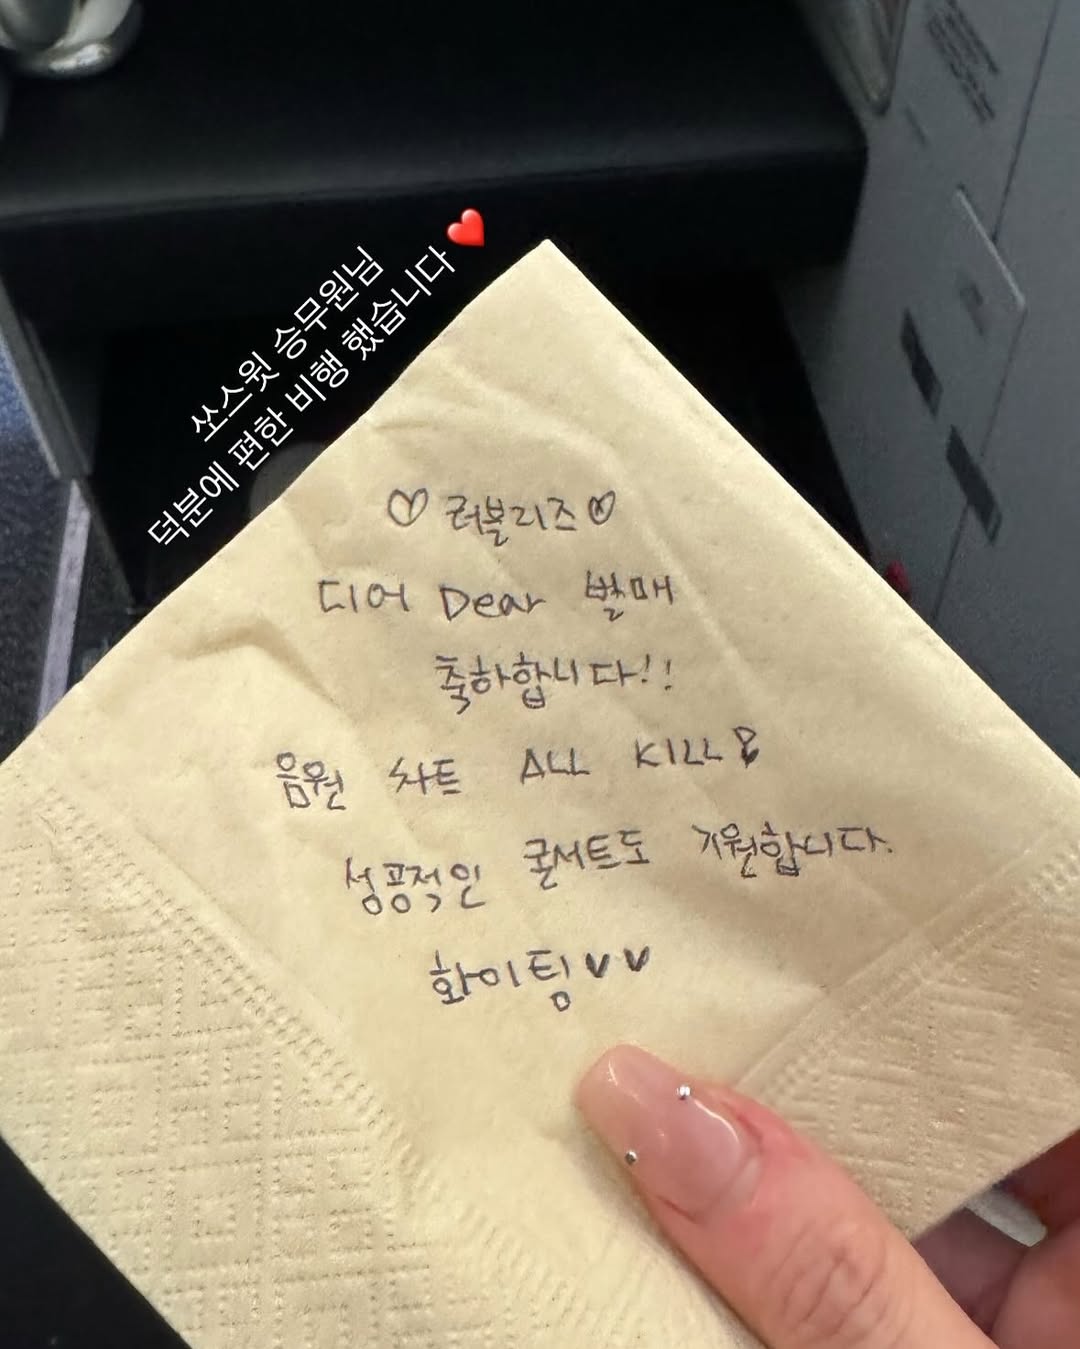 쏘스윗 승무원님
덕분에 편한 비행 했습니다❤️
♡ 러블리즈 ♡
디어 Dear 발매
축하합니다!!
음원 차트 ALL KILL
성공적인 콘서트도 기원합니다.
화이팅 ♥♥